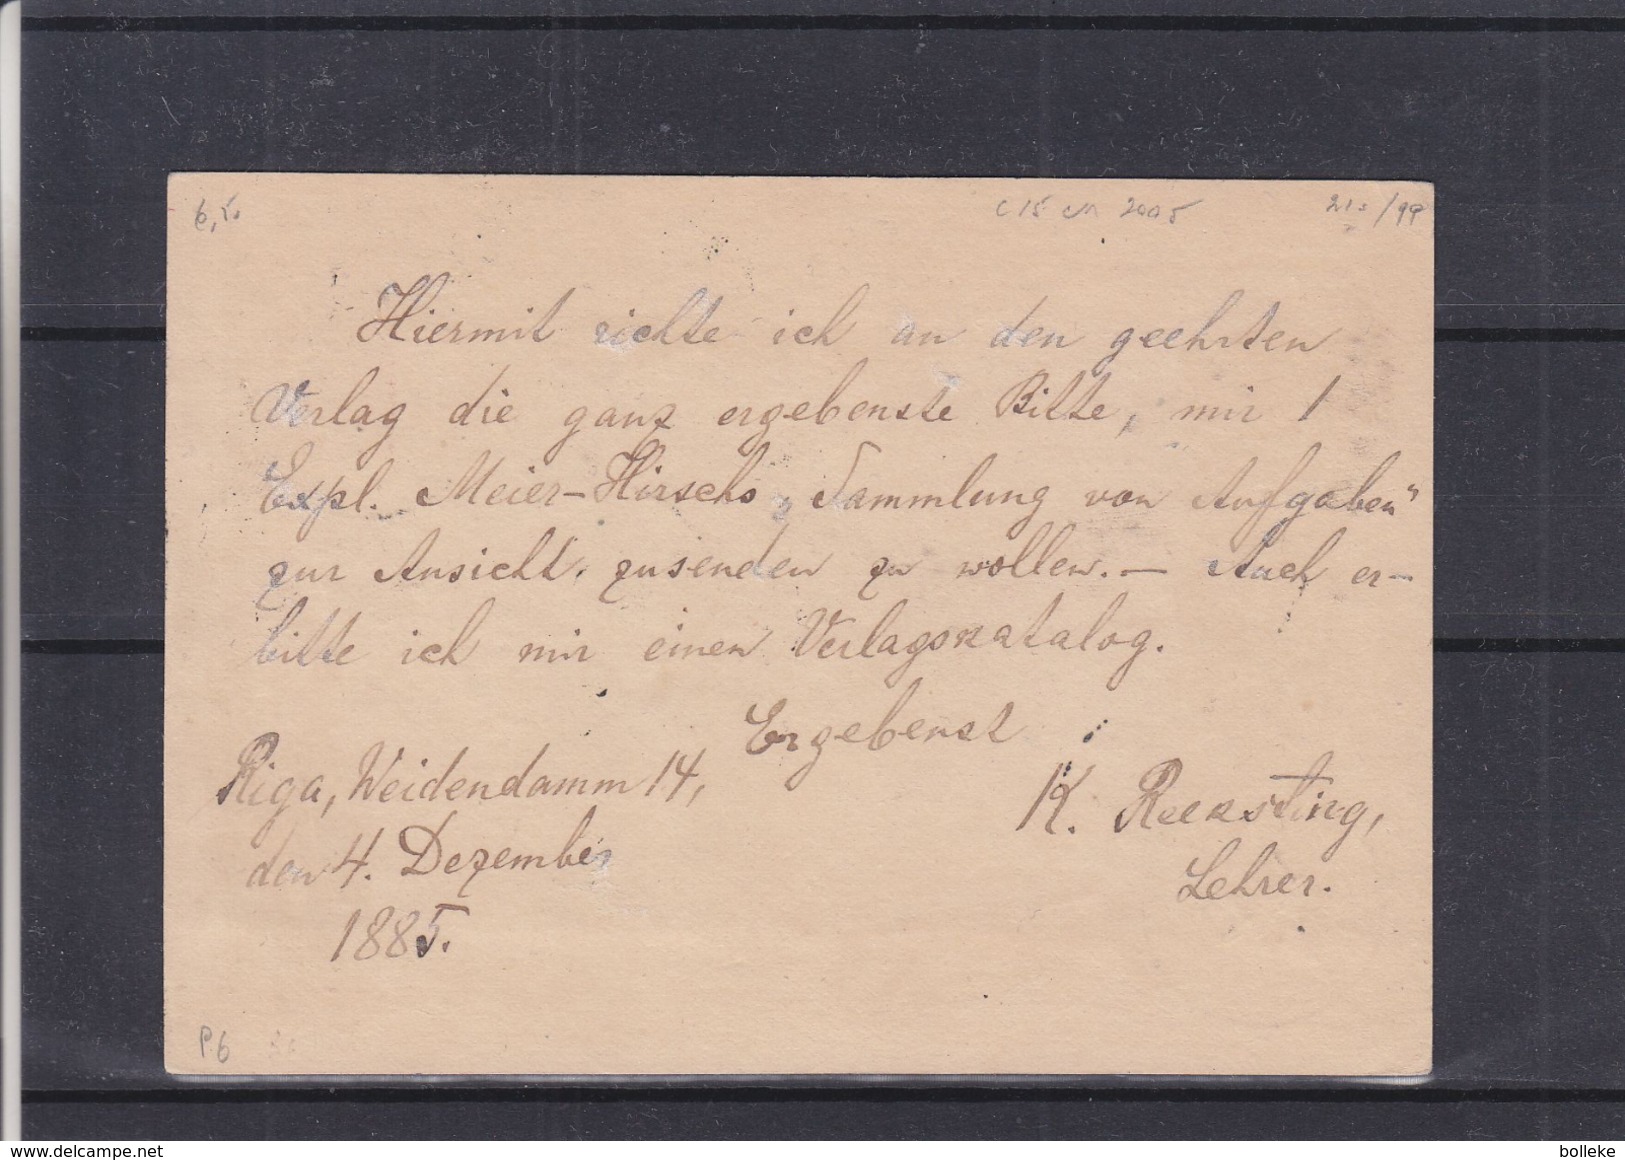 6,5.
c 15 un 2005
Hiermit richte ich an den geehrten
Verlag die ganz ergebenste Bitte, mir 1
Expl. Meier-Hirschs „Sammlung von Aufgaben“
zur Ansicht zusenden zu wollen. — Auch er-
bitte ich mir einen Verlagskatalog.
Ergebenst
Riga, Weidendamm 14,
K.
den 4. Dezember
Lehrer.
1885.
P.6
bolleke